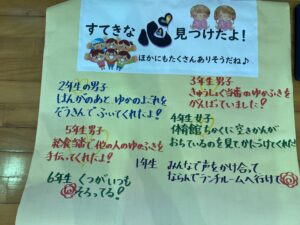 すてきな心見つけたよ！
ほかにもたくさんありそうだね♪
2年生の男子
はんがのあと ゆかのよごれを
ぞうきんでふいてくれたよ！
3年生男子
きゅうしょく当番のゆかのふきを
がんばっていました！
5年生男子
給食当番で他の人のゆかのふきを
手伝ってくれたよ！
4年生女子
体育館ちかくに空きかんが
おちているのを見てかたづけてくれた
1年生 みんなで声をかけ合って
ならんでランチルームへ行けて
6年生 くつがいつも
そろってる！